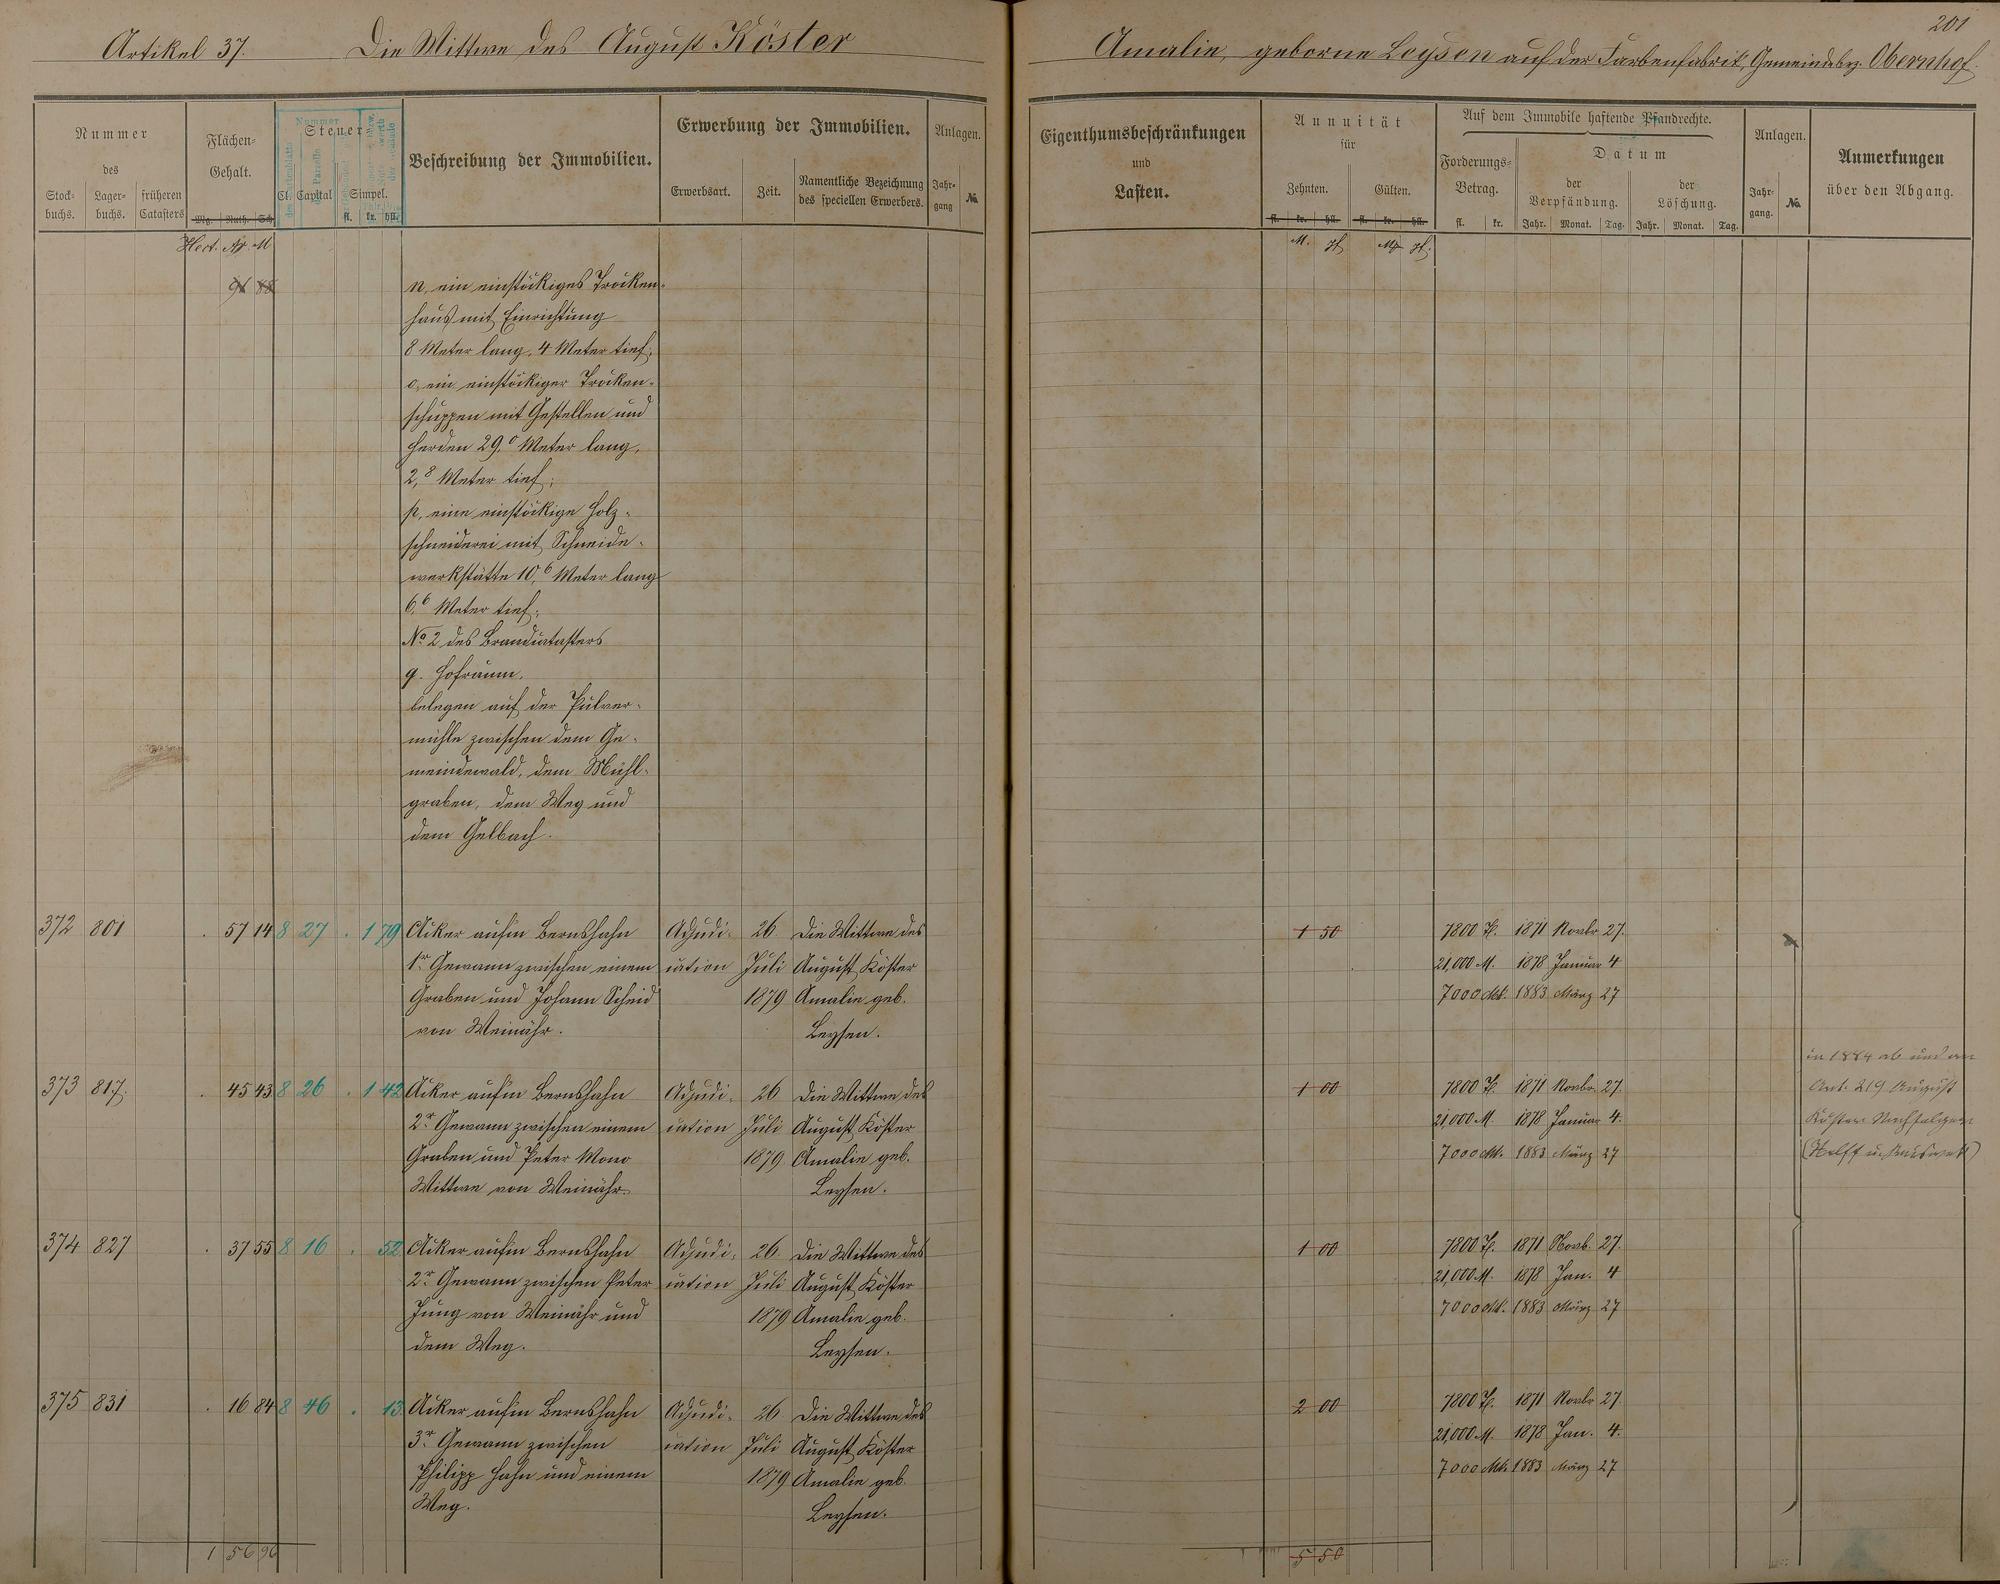 201
Artikel 37. Die Wittwe des August Köster
Amalie, geborne Leysen auf der Farbenfabrik, Gemeindebez. Obernhof.
Nummer
des
Stock-
buchs.
Lager-
buchs.
früheren
Catasters
Flächen-
Gehalt.
Mg. Ruth. Sch.
Nummer
Steuer-
Cl. Capital Simpel.
fl. kr. hll.
Beschreibung der Immobilien.
Erwerbung der Immobilien.
Erwerbsart. Zeit.
Namentliche Bezeichnung
des speciellen Erwerbers.
Anlagen.
Jahr-
gang
No.
Eigenthumsbeschränkungen
und
Lasten.
Annuität
für
Zehnten. Gülten.
fl. kr. hll. fl. kr. hll.
Auf dem Immobile haftende Pfandrechte.
Forderungs-
Betrag.
fl. kr.
Datum
der
Verpfändung.
der
Löschung.
Jahr. Monat. Tag. Jahr. Monat. Tag.
Anlagen.
Jahr-
gang.
No.
Anmerkungen
über den Abgang.
Hect. Ar. M
96 88
n, ein einstöckiges Trocken-
haus mit Einrichtung
8 Meter lang, 4 Meter tief;
o, ein einstöckiger Trocken-
schuppen mit Gestellen und
Herden 29,0 Meter lang,
2,8 Meter tief;
p, eine einstöckige Holz-
schneiderei mit Schneide-
werkstätte 10,6 Meter lang
6,6 Meter tief;
No. 2 des Brandcatasters
q. Hofraum.
belegen auf der Pulver-
mühle zwischen dem Ge-
meindewald, dem Mühl-
graben, dem Weg und
dem Gelbach.
372 801 . 57 14 8 27 . 1 79 Acker aufm Bernshahn Adjudi- 26 Die Wittwe des 1 50 7800 fl. 1871 Novbr 27.
1r Gewann zwischen einem cation Juli August Köster 21,000 M. 1878 Januar 4
Graben und Johann Scheid 1879 Amalie geb. 7000 Mk. 1883 März 27
von Weinähr. Leysen.
373 817. . 45 43 8 26 . 1 42 Acker aufm Bernshahn Adjudi- 26 Die Wittwe des 1 00 7800 fl. 1871 Novbr. 27.
2r Gewann zwischen einem cation Juli August Köster 21,000 M. 1878 Januar 4.
Graben und Peter Mono 1879 Amalie geb. 7000 Mk. 1883 März 27
Wittwe von Weinähr. Leysen.
in 1884 ab und an
Art. 219 August
Köster Nachfolger
374 827 . 37 55 8 16 . 52 Acker aufm Bernshahn Adjudi- 26 Die Wittwe des 1 00 7800 fl. 1871 Novb. 27.
2r Gewann zwischen Peter cation Juli August Köster 21,000 M. 1878 Jan. 4
Jung von Weinähr und 1879 Amalie geb. 7000 Mk. 1883 März 27
dem Weg. Leysen.
375 831 . 16 84 8 46 . 13 Acker aufm Bernshahn Adjudi- 26 Die Wittwe des 2 00 7800 fl. 1871 Novbr 27.
3r Gewann zwischen cation Juli August Köster 21,000 M. 1878 Jan. 4.
Philipp Hahn und einem 1879 Amalie geb. 7000 Mk. 1883 März 27
Weg. Leysen.
1 56 96
5 50